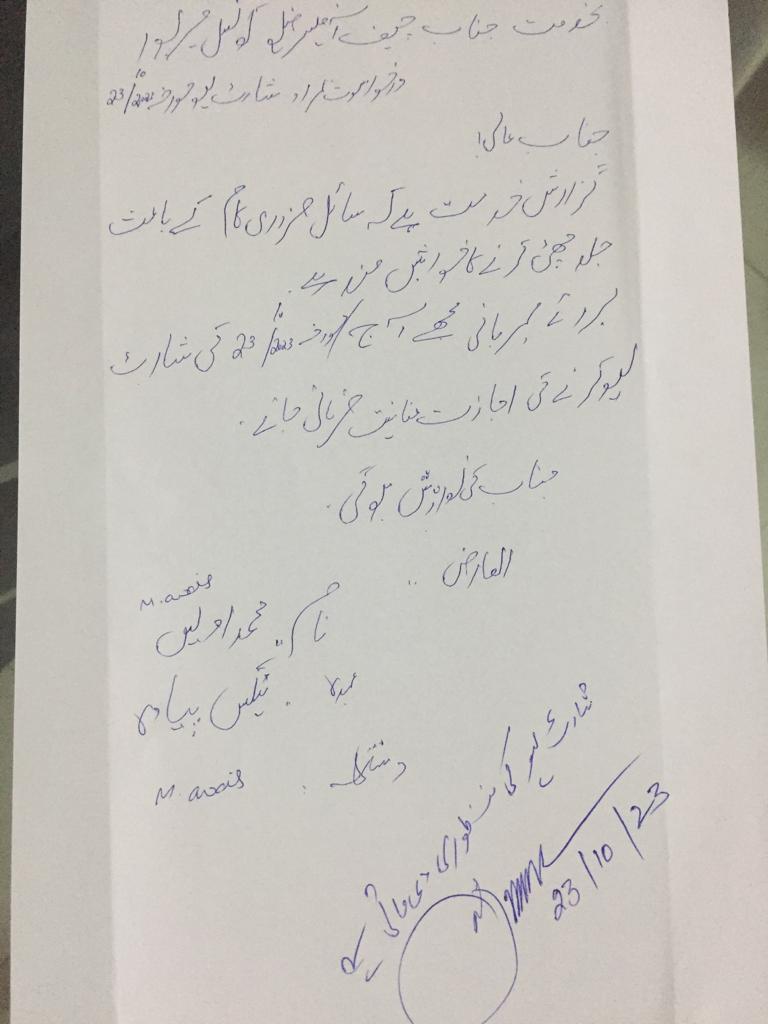 بخدمت جناب چیف آفیسر ضلع کونسل میرپور
درخواست بمراد شارٹ لیو مورخہ 23/10/2023
جناب عالی!
گزارش خدمت ہے کہ سائل ضروری کام کے باعث
جلد چھٹی کرنے کا خواہش مند ہے۔
برائے مہربانی مجھے آج مورخہ 23/10/2023 کی شارٹ
لیو کرنے کی اجازت عنایت فرمائی جائے۔
جناب کی نوازش ہوگی۔
العارض
M. awais
نام محمد اویس
عہدہ ٹیکس پیادہ
دستخط M. awais
شارٹ لیو کی منظوری دی جاتی ہے
23/10/23